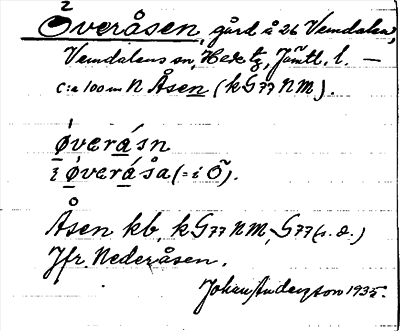 Överåsen, gård å 26 Vemdalen,
Vemdalens sn, Hede tg, Jämtl. l. —
c:a 100 m N Åsen (k G77 NM).
øverásn
i øveråsa (= i Ö).
Åsen kb, k G77 NM, G77 (s. o.)
Jfr. Nederåsen.
Johan Anderson 1935.